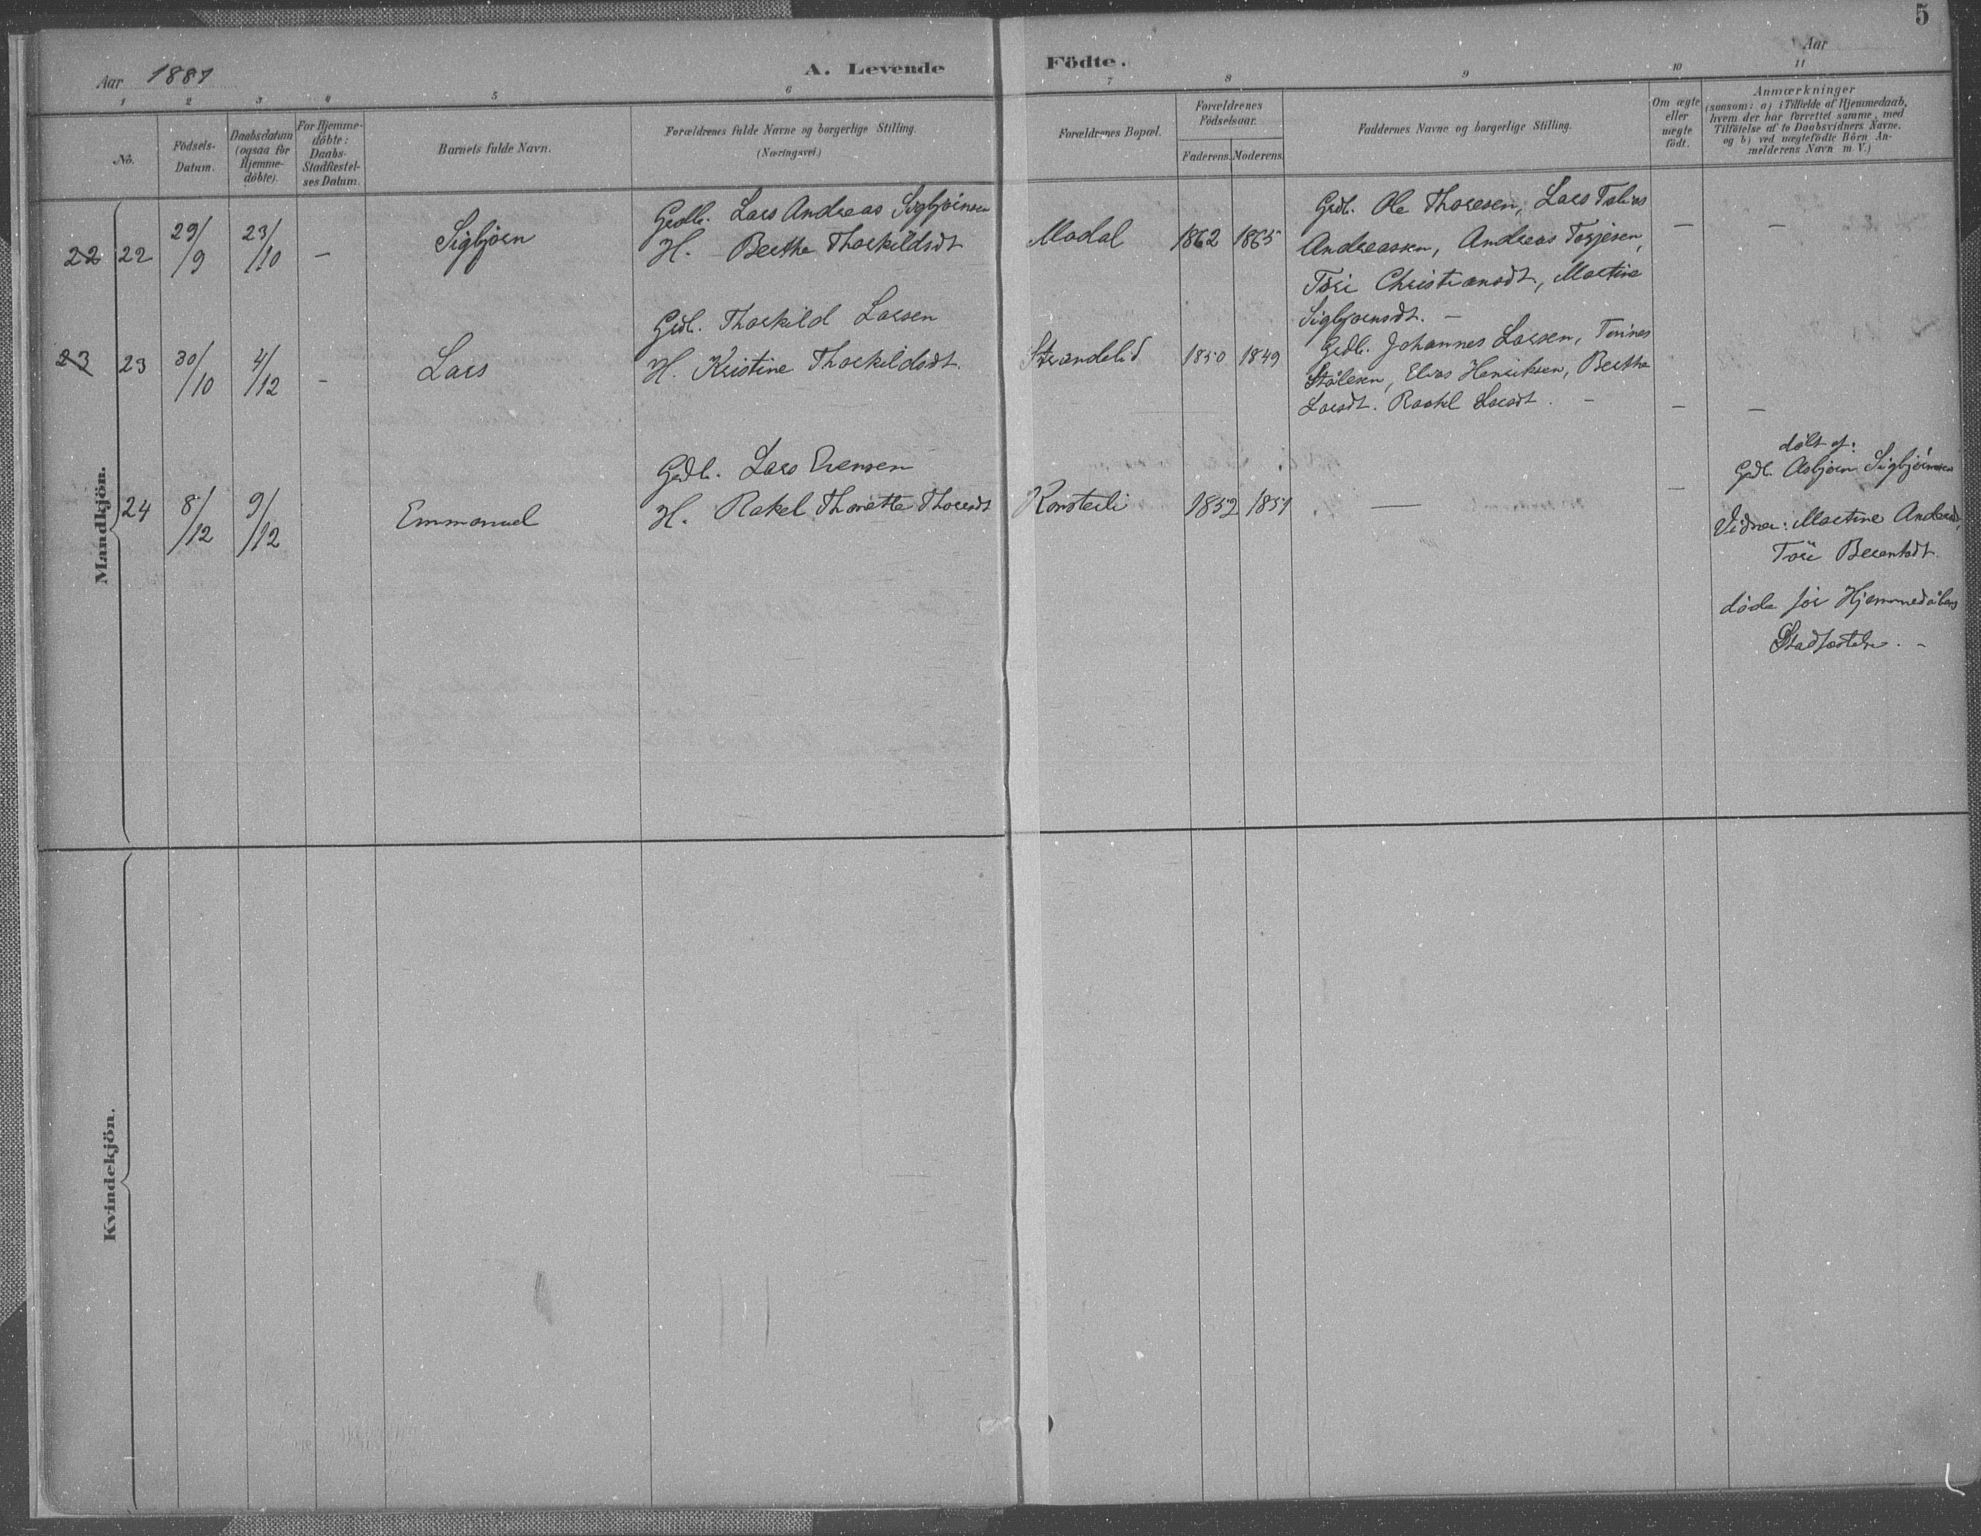 5
Aar 1887
A. Levende Födte.
Aar
1 2 3 4 5 6 7 8 9 10 11
No.
Födsels-
Datum.
Daabsdatum
(ogsaa for
Hjemme-
döbte).
For Hjemme-
döbte:
Daabs-
Stadfæstel-
ses Datum.
Barnets fulde Navn.
Forældrenes fulde Navne og borgerlige Stilling.
(Næringsvei.)
Forældrenes Bopæl.
Forældrenes
Födselsaar.
Faderens. Moderens.
Faddernes Navne og borgerlige Stilling.
Om ægte
eller
uægte
födt.
Anmærkninger
(saasom: a) i Tilfælde af Hjemmedaab,
hvem der har forrettet samme, med
Tilföielse af to Daabsvidners Navne.
og b) ved uægtefödte Börn An-
melderens Navn m. V.)
Mandkjön.
22 22 29/9 23/10 — Sigbjørn
Grdb. Lars Andreas Sigbjørnsen
H. Berthe Thorkildsdt
Modal 1862 1865
Grdb. Ole Thoresen, Lars Tobias
Andreassen, Andreas Torjesen,
Tori Christiansdt, Martine
Sigbjørnsdt. —
— —
23 23 30/10 4/12 — Lars
Grdb. Thorkild Larsen
H. Kristine Thorkildsdt.
Strandelid 1850 1849
Grdb. Johannes Larsen, Tønnes
Stålesen, Elias Henriksen, Berthe
Larsdt. Rakel Larsdt. —
— —
24 8/12 9/12 Emmanuel
Grdb. Lars Evensen
H. Rakel Thonette Thorsdt
1852 1851
— —
døbt af:
Grdb. Asbjørn Sigbjørnsen
Vidner: Martine
Tori Berentsdt.
døde før Hjemmedåbens
Stadfæstelse. —
Kvindekjön.